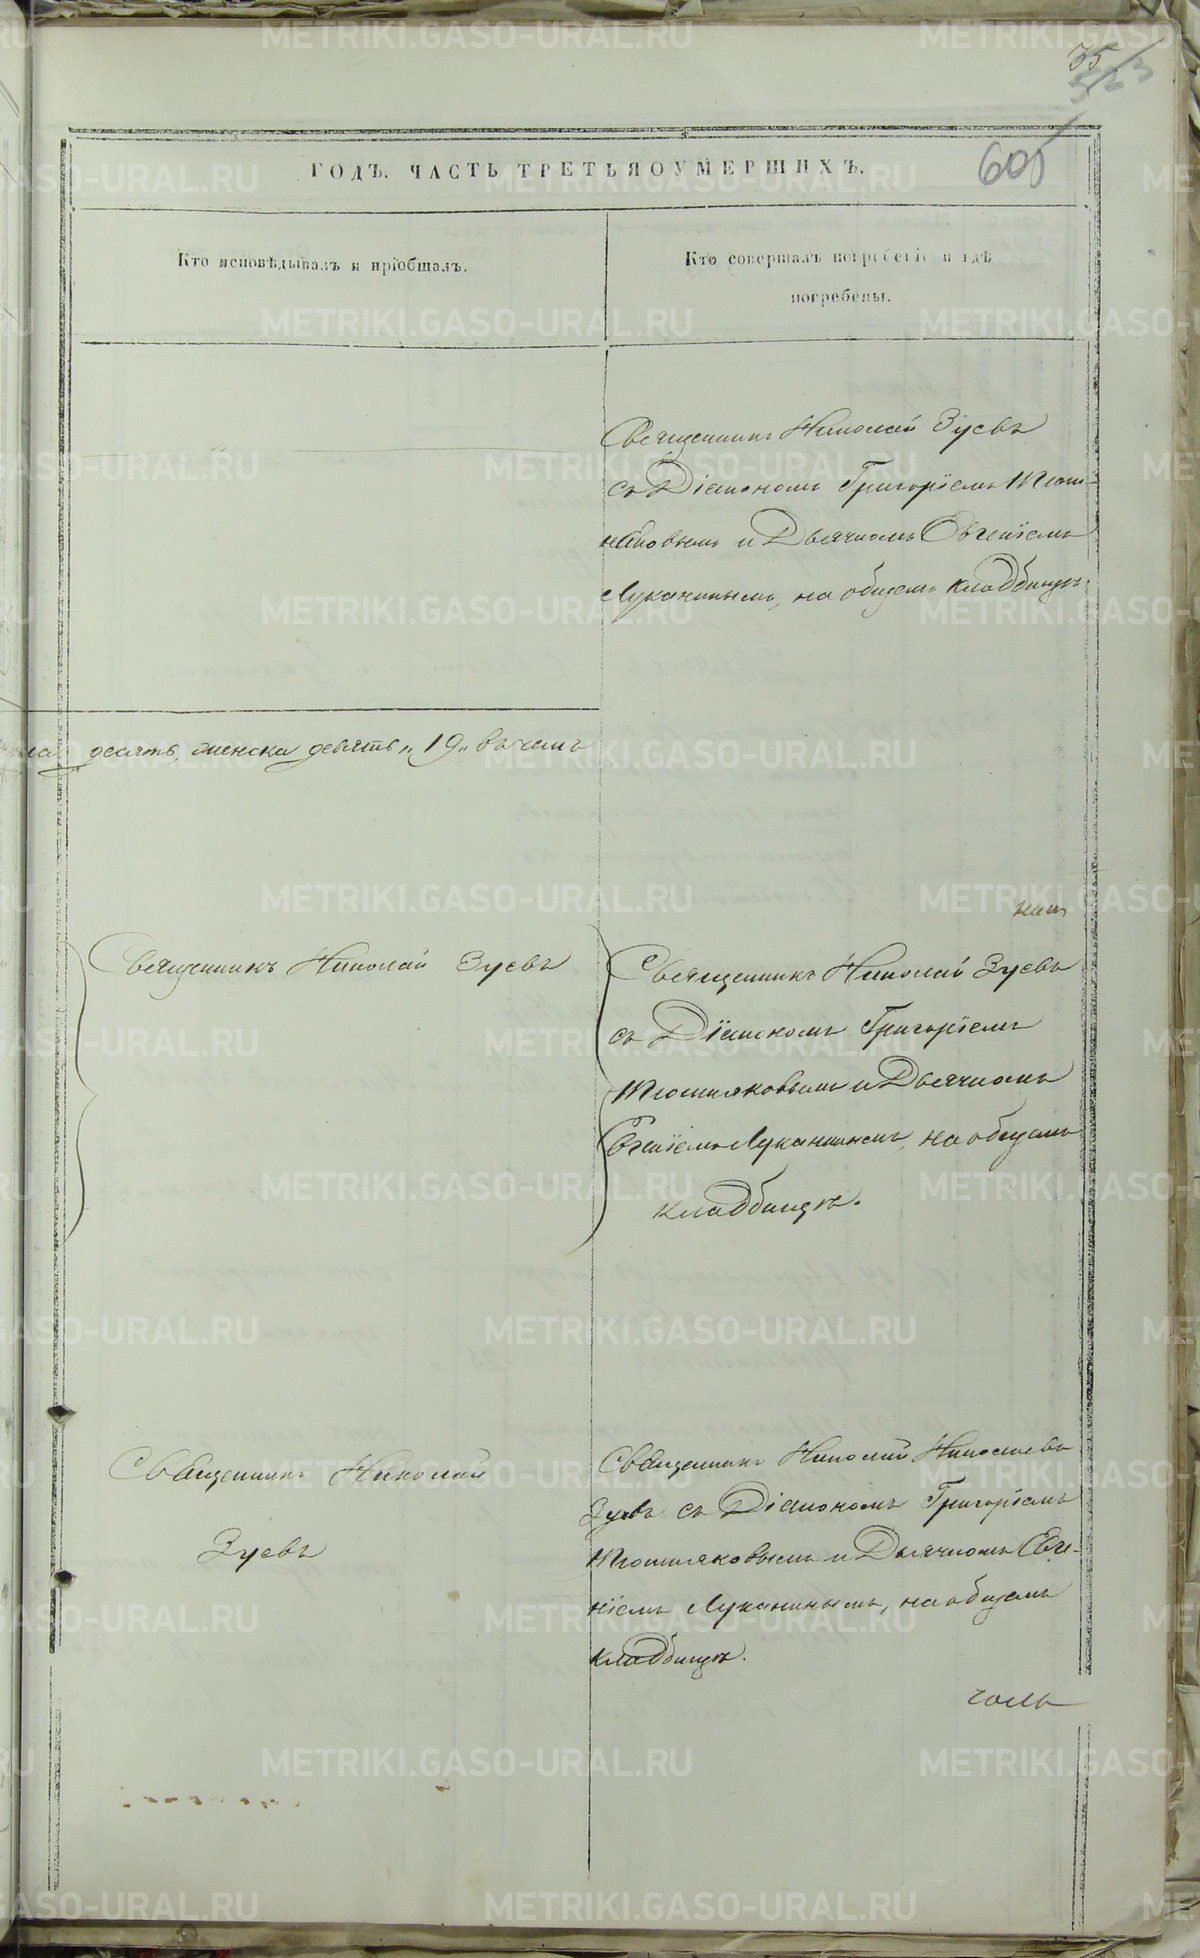 35
605
ГОДЪ. ЧАСТЬ ТРЕТЬЯ О УМЕРШИХЪ.
Кто исповѣдывалъ и пріобщалъ.
Кто совершалъ погребеніе и гдѣ
погребены.
Священникъ Николай Зуевъ
съ Діакономъ Григоріемъ Тюш-
няковымъ и Дьячкомъ Евгеніемъ
Луканинымъ, на общемъ кладбищѣ.
десять, женска девять „19„ въ чемъ
Священникъ Николай Зуевъ
Священникъ Николай Зуевъ
съ Діакономъ Григоріемъ
Тюшняковымъ и Дьячкомъ
Евгеніемъ Луканинымъ, на общемъ
кладбищѣ.
Священникъ Николай
Зуевъ
Священникъ Николай Николаевъ
Зуевъ съ Діакономъ Григоріемъ
Тюшняковымъ и Дьячкомъ Евге-
ніемъ Луканинымъ, на общемъ
кладбищѣ.
METRIKI.GASO-URAL.RU